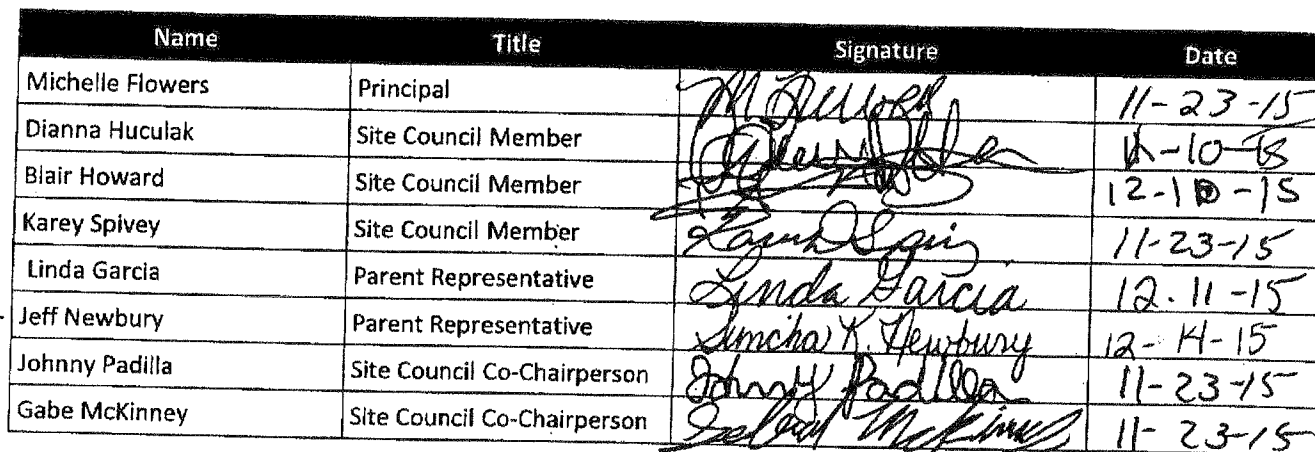 Name Title Signature Date
Michelle Flowers Principal 11-23-15
Dianna Huculak Site Council Member
Blair Howard Site Council Member 12-10-15
Karey Spivey Site Council Member 11-23-15
Linda Garcia Parent Representative Linda Garcia 12.11-15
Jeff Newbury Parent Representative Simcha K. Newbury 12-14-15
Johnny Padilla Site Council Co-Chairperson Johnny Padilla 11-23-15
Gabe McKinney Site Council Co-Chairperson McKinney 11-23-15